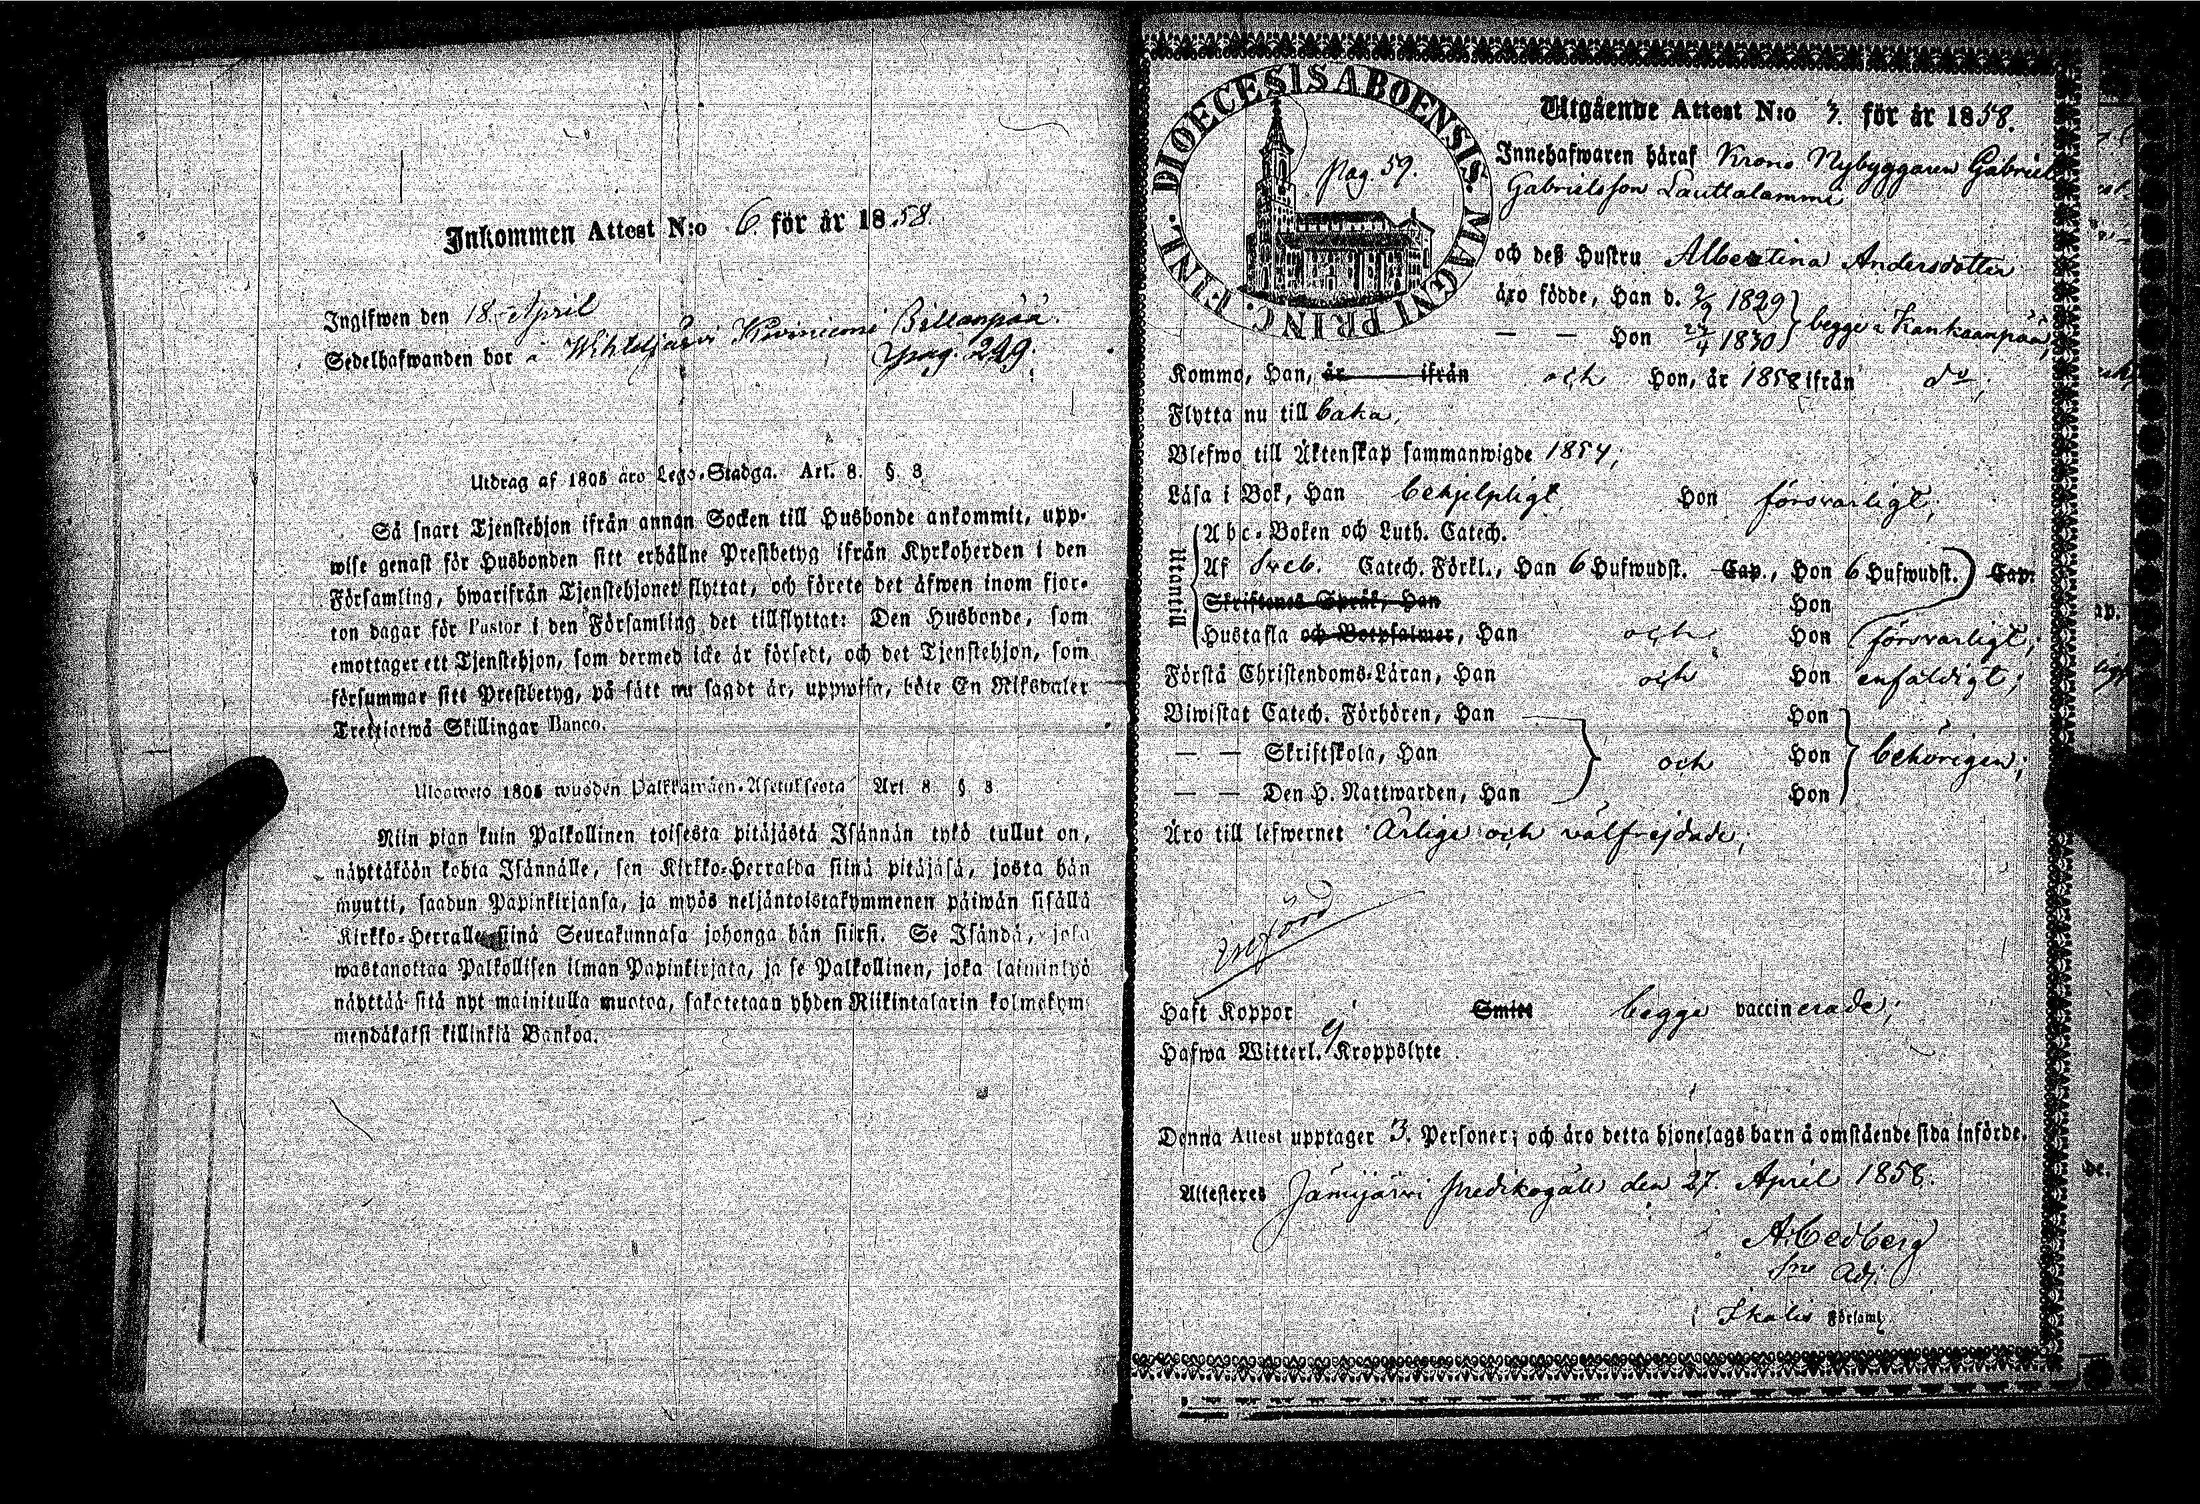 Inkommen Attest N:o 6. för år 1858.
Ingifwen den 18 April
Sedelhafwanden bor å
pag. 249.
Utdrag af 1805 års Lego-Stadga. Art. 8. §. 8.
Så snart Tjenstehjon ifrån annan Socken till Husbonde ankommit, upp-
wise genast för Husbonden sitt erhållne Prestbetyg ifrån Kyrkoherden i den
Församling, hwarifrån Tjenstehjonet flyttat, och förete det äfwen inom fjor-
ton dagar för Pastor i den Församling det tillflyttat: Den Husbonde, som
emottager ett Tjenstehjon, som dermed icke är försedt, och det Tjenstehjon, som
försummar sitt Prestbetyg, på sätt nu sagdt är, uppwisa, böte En Riksdaler
Trettiotwå Skillingar Banco.
1805 wuoden Palkkawäen-Asetuksesta Art. 8. §. 8.
Niin pian kuin Palkollinen toisesta pitäjästä Isännän tykö tullut on,
näyttäköön kohta Isännälle, sen Kirkko-Herralda siinä pitäjäsä, josta hän
muutti, saadun Papinkirjansa, ja myös neljäntoistakymmenen päiwän sisällä
Kirkko-Herralle siinä Seurakunnasa johonga hän siirsi. Se Isändä, joka
wastanottaa Palkollisen ilman Papinkirjata, ja se Palkollinen, joka laiminlyö
näyttää sitä nyt mainitulla muotoa, sakotetaan yhden Riikintalarin kolmekym
mendäkaksi killinkiä Bankoa.
DIOECESIS ABOENSIS. MAGNI PRINC. FINL.
pag 59.
Utgående Attest N:o 7. för år 1858.
Innehafwaren häraf Krono Nybyggaren Gabriel
Gabrielsson Lauttalammi
och deß Hustru Albertina Andersdotter
äro födde, Han d. 2/9 1829 } begge i Kankaanpää;
— — Hon 27/4 1830
Kommo, Han, år ifrån och Hon, år 1858 ifrån do;
Flytta nu till baka;
Blefwo till Äktenskap sammanwigde 1854;
Läsa i Bok, Han behjelpligt Hon försvarligt;
Utantill
Abc-Boken och Luth. Catech.
Af Sveb. Catech. Förkl., Han 6 Hufwudst. Cap., Hon 6 Hufwudst. Cap.
Skriftenes Språk, Han Hon
Hustafla och Botpsalmer, Han och Hon försvarligt;
Förstå Christendoms-Läran, Han och Hon enfaldigt;
Biwistat Catech. Förhören, Han Hon
— — Skriftskola, Han och Hon behörigen;
— — Den H. Nattwarden, Han Hon
Äro till lefwernet Ärlige och välfrejdade;
Haft Koppor Smitt begge vaccinerade;
Hafwa Witterl. ej Kroppslyte
Denna Attest upptager 3. Personer; och äro detta hjonelags barn å omstående sida införde.
Attesteras Jämijärvi Predikogäll den 27. April 1858.
A. Cedberg
Adj.
Ikalis Församl.